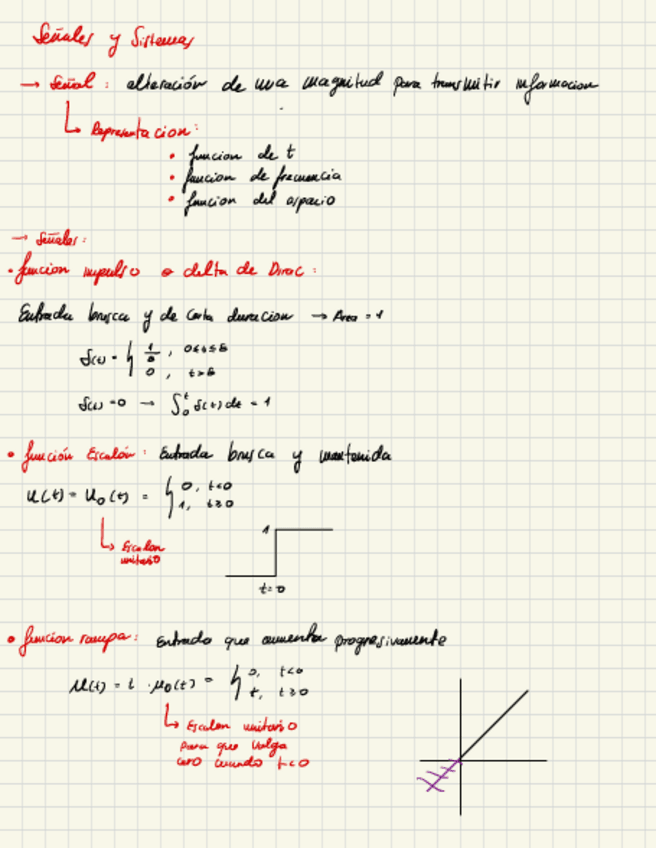 Señales y Sistemas
→ Señal: alteración de una magnitud para transmitir informacion
↳ Representacion:
• funcion de t
• funcion de frecuencia
• funcion del espacio
→ Señales:
• funcion impulso o delta de Dirac:
Entrada brusca y de corta duracion → Area = 1
δ(t) = { 1/δ, 0≤t≤δ
0, t>δ
δ(t) = 0 → ∫₀ᵗ δ(t) dt = 1
• función Escalón: Entrada brusca y mantenida
u(t) = u₀(t) = { 0, t<0
1, t≥0
↳ Escalon
unitario
1
t=0
• funcion rampa: Entrada que aumenta progresivamente
u(t) = t · u₀(t) = { 0, t<0
t, t≥0
↳ Escalon unitario
para que valga
cero cuando t<0